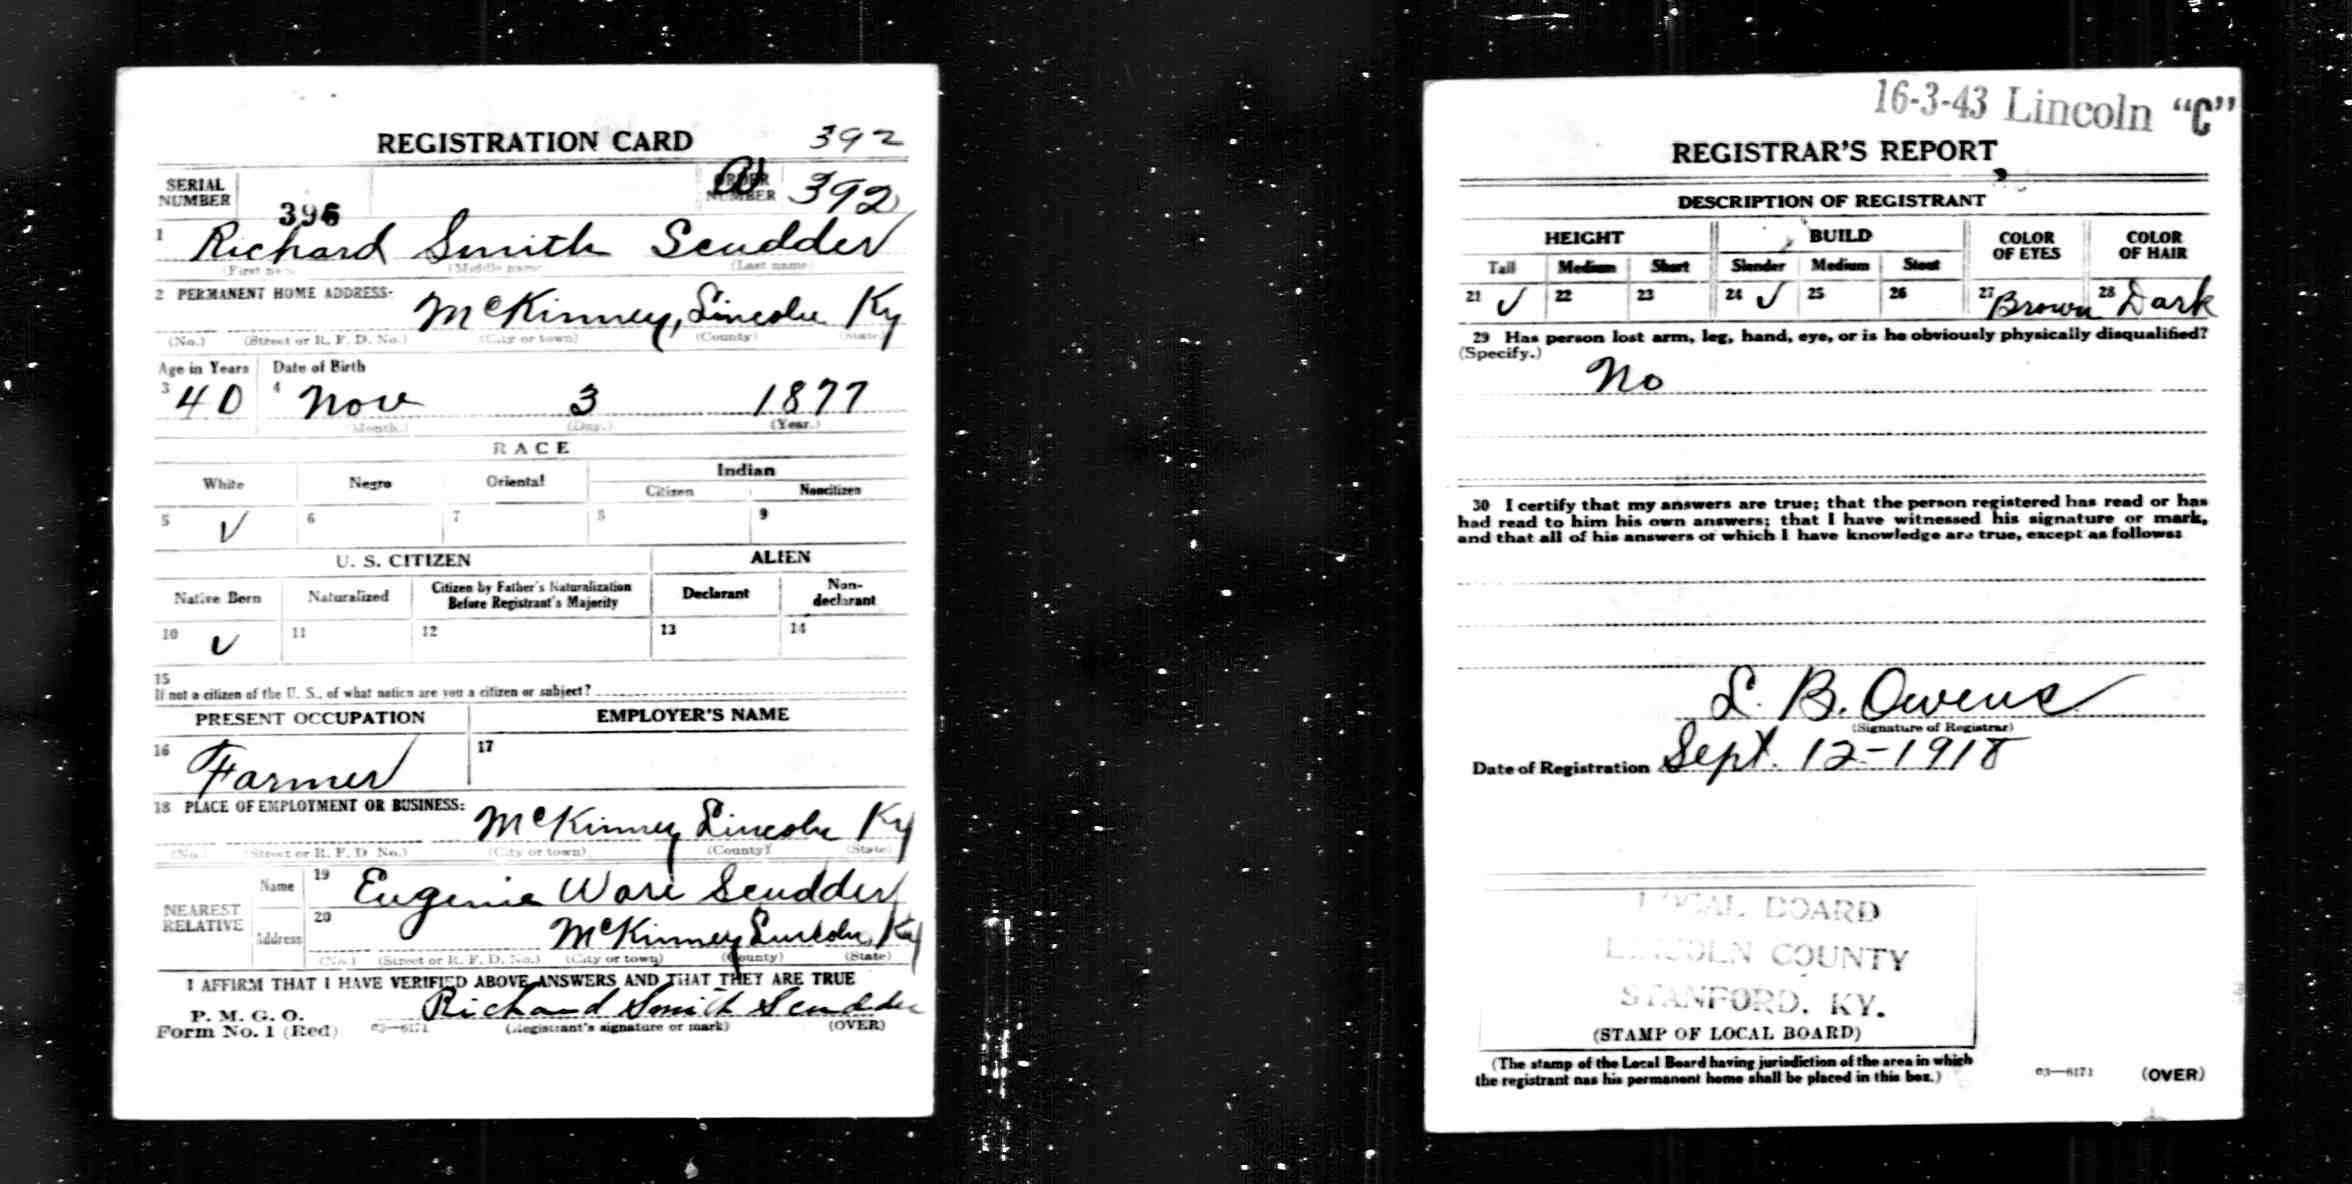 REGISTRATION CARD 392
SERIAL NUMBER 396 ORDER NUMBER 392
1 Richard Smith Scudder
(First name) (Middle name) (Last name)
2 PERMANENT HOME ADDRESS:
McKinney, Lincoln Ky
(No.) (Street or R. F. D. No.) (City or town) (County) (State)
Age in Years Date of Birth
3 40 4 Nov 3 1877
(Month.) (Day.) (Year.)
RACE
White Negro Oriental Indian
Citizen Noncitizen
5 ✓ 6 7 8 9
U. S. CITIZEN ALIEN
Native Born Naturalized Citizen by Father's Naturalization Before Registrant's Majority Declarant Non-declarant
10 ✓ 11 12 13 14
15
If not a citizen of the U. S., of what nation are you a citizen or subject?
PRESENT OCCUPATION EMPLOYER'S NAME
16 Farmer 17
18 PLACE OF EMPLOYMENT OR BUSINESS:
McKinney Lincoln Ky
(No.) (Street or R. F. D. No.) (City or town) (County) (State)
NEAREST RELATIVE
Name 19 Eugenia Ware Scudder
Address 20 McKinney Lincoln Ky
(No.) (Street or R. F. D. No.) (City or town) (County) (State)
I AFFIRM THAT I HAVE VERIFIED ABOVE ANSWERS AND THAT THEY ARE TRUE
P. M. G. O.
Form No. 1 (Red) 03—6171 Richard Smith Scudder
(Registrant's signature or mark) (OVER)
16-3-43 Lincoln "C"
REGISTRAR'S REPORT
DESCRIPTION OF REGISTRANT
HEIGHT BUILD COLOR OF EYES COLOR OF HAIR
Tall Medium Short Slender Medium Stout
21 ✓ 22 23 24 ✓ 25 26 27 Brown 28 Dark
29 Has person lost arm, leg, hand, eye, or is he obviously physically disqualified?
(Specify.)
No
30 I certify that my answers are true; that the person registered has read or has
had read to him his own answers; that I have witnessed his signature or mark,
and that all of his answers of which I have knowledge are true, except as follows:
L. B. Owens
(Signature of Registrar)
Date of Registration Sept. 12-1918
LOCAL BOARD
LINCOLN COUNTY
STANFORD, KY.
(STAMP OF LOCAL BOARD)
(The stamp of the Local Board having jurisdiction of the area in which
the registrant has his permanent home shall be placed in this box.)
03—6171 (OVER)